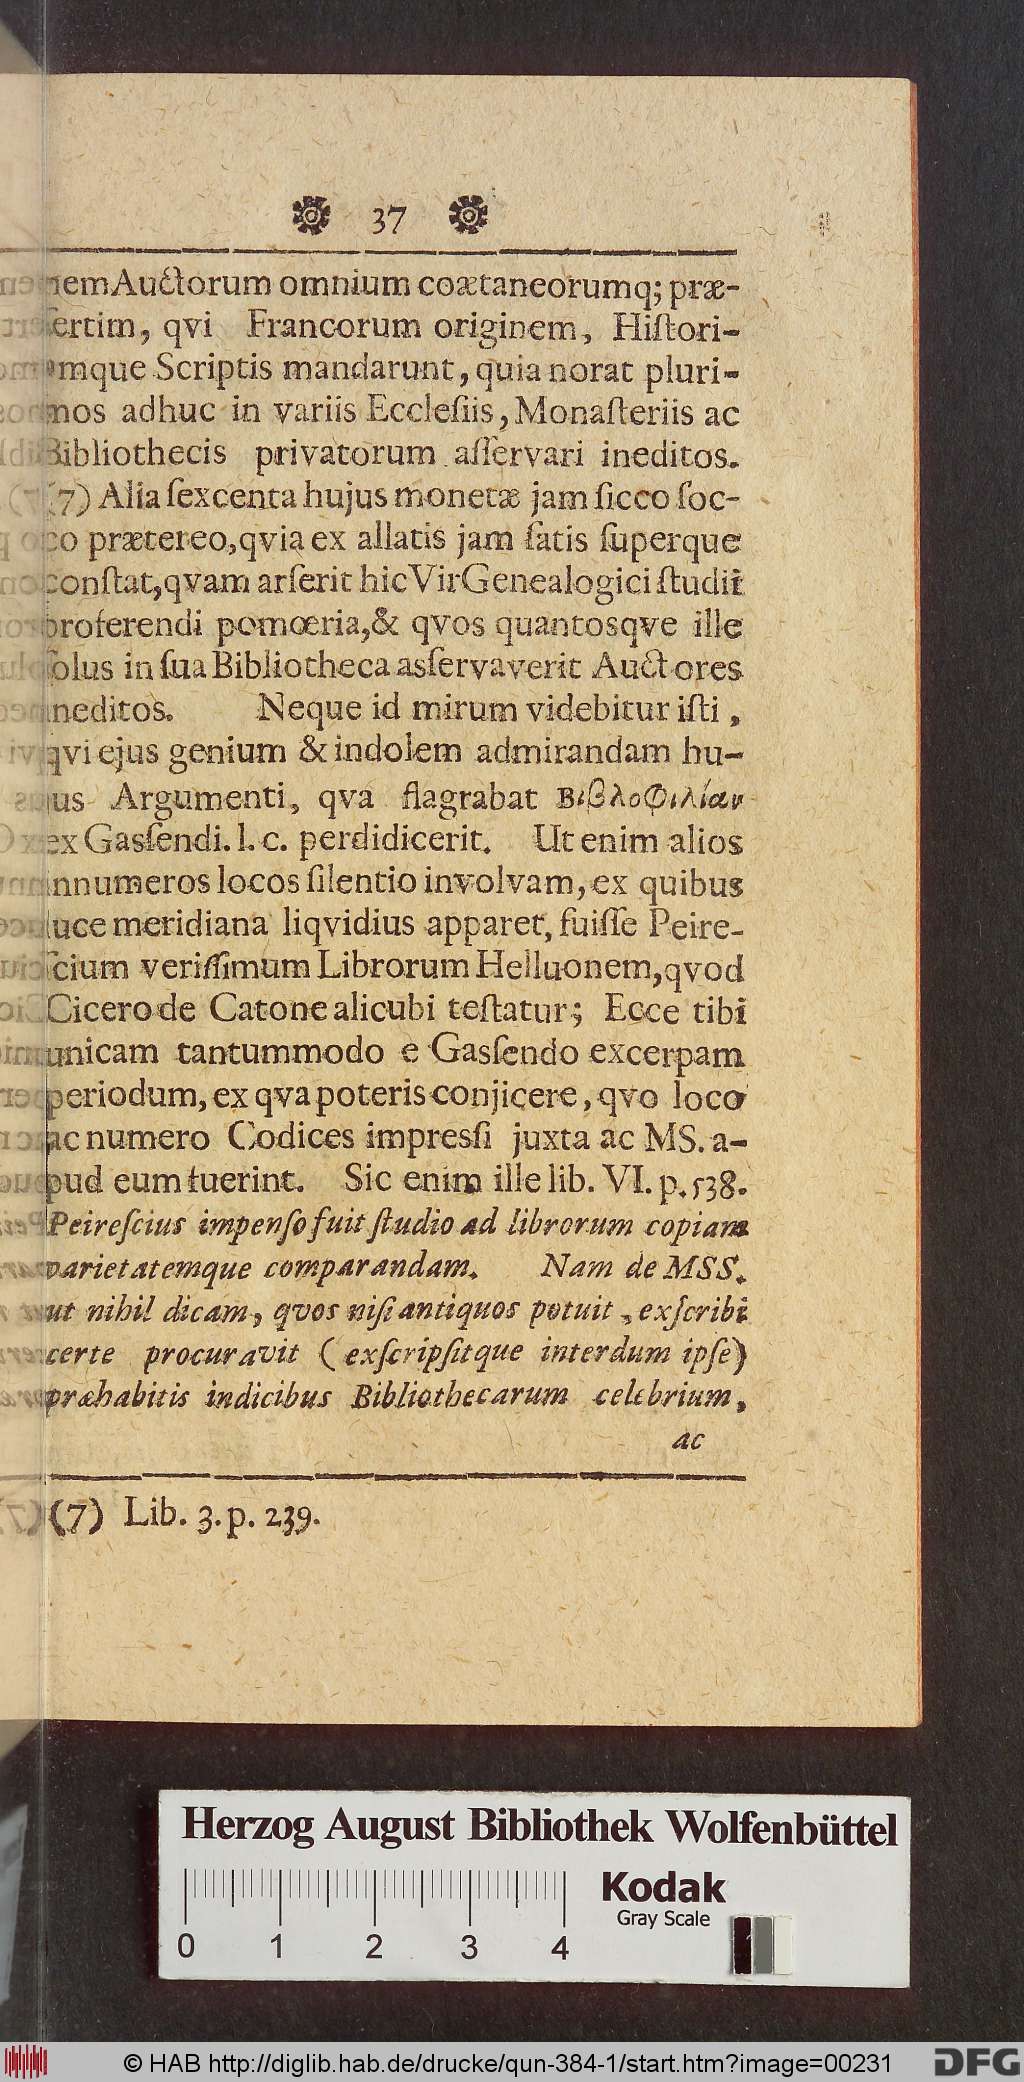 37
nem Auctorum omnium coætaneorumq; præ-
ſertim, qvi Francorum originem, Hiſtori-
amque Scriptis mandarunt, quia norat pluri-
mos adhuc in variis Eccleſiis, Monaſteriis ac
Bibliothecis privatorum aſſervari ineditos.
(7) Alia ſexcenta hujus monetæ jam ſicco ſoc-
co prætereo, qvia ex allatis jam ſatis ſuperque
conſtat, qvam arſerit hic Vir Genealogici ſtudii
proferendi pomœria, & qvos quantosqve ille
ſolus in ſua Bibliotheca asſervaverit Auctores
ineditos. Neque id mirum videbitur iſti,
qvi ejus genium & indolem admirandam hu-
jus Argumenti, qva flagrabat Βιβλοφιλίαν
ex Gasſendi. l. c. perdidicerit. Ut enim alios
innumeros locos ſilentio involvam, ex quibus
luce meridiana liqvidius apparet, fuiſſe Peire-
ſcium veriſſimum Librorum Helluonem, qvod
Cicero de Catone alicubi teſtatur; Ecce tibi
unicam tantummodo e Gasſendo excerpam
periodum, ex qva poteris conjicere, qvo loco
ac numero Codices impresſi juxta ac MS. a-
pud eum fuerint. Sic enim ille lib. VI. p. 538.
Peireſcius impenſo fuit ſtudio ad librorum copiam
varietatemque comparandam. Nam de MSS.
ut nihil dicam, qvos niſi antiquos potuit, exſcribi
certe procuravit (exſcripſitque interdum ipſe)
præhabitis indicibus Bibliothecarum celebrium,
ac
(7) Lib. 3. p. 239.
Herzog August Bibliothek Wolfenbüttel
Kodak
Gray Scale
0 1 2 3 4
© HAB http://diglib.hab.de/drucke/qun-384-1/start.htm?image=00231
DFG